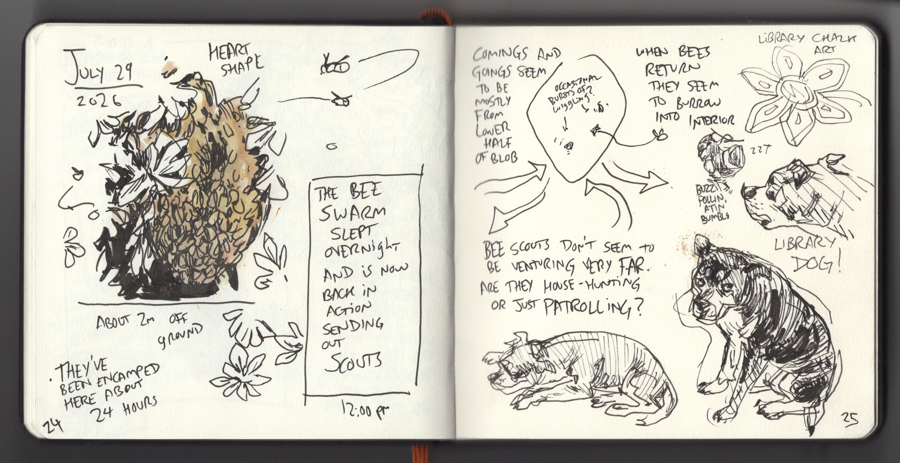 JULY 29
2026
HEART
SHAPE
THE BEE
SWARM
SLEPT
OVERNIGHT
AND IS NOW
BACK IN
ACTION
SENDING
OUT
SCOUTS
12:00 pm
ABOUT 2m OFF
GROUND
· THEY'VE
BEEN ENCAMPED
HERE ABOUT
24 HOURS
24
COMINGS AND
GOINGS SEEM
TO BE
MOSTLY
FROM
LOWER
HALF
OF BLOB
OCCASIONAL
BURSTS OF
WIGGLING
WHEN BEES
RETURN
THEY SEEM
TO BURROW
INTO INTERIOR
LIBRARY CHALK
ART
BUZZIN
POLLIN,
EATIN
BUMBLE
LIBRARY
DOG!
BEE SCOUTS DON'T SEEM TO
BE VENTURING VERY FAR.
ARE THEY HOUSE-HUNTING
OR JUST PATROLLING?
25